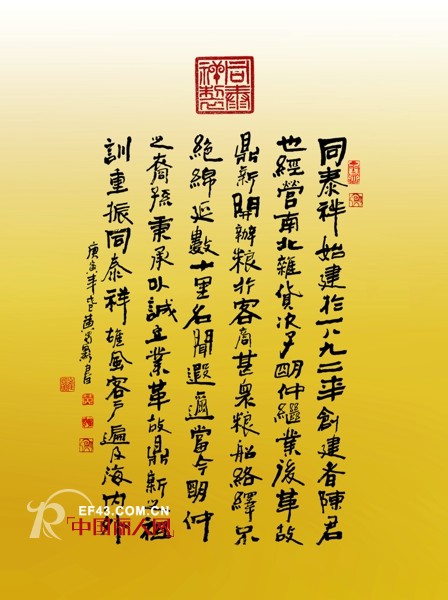 同泰
祥製
同泰祥始建於一八九二年創建者陳君
也經營南北雜貨次子明仲繼業後革故
鼎新開辦粮行客商甚衆粮船絡繹不
絶綿延數十里名聞遐邇當今明仲
之裔孫秉承以誠立業革故鼎新之祖
訓重振同泰祥雄風客户遍及海内外
庚寅年
EF43.COM.CN
中国丽人网